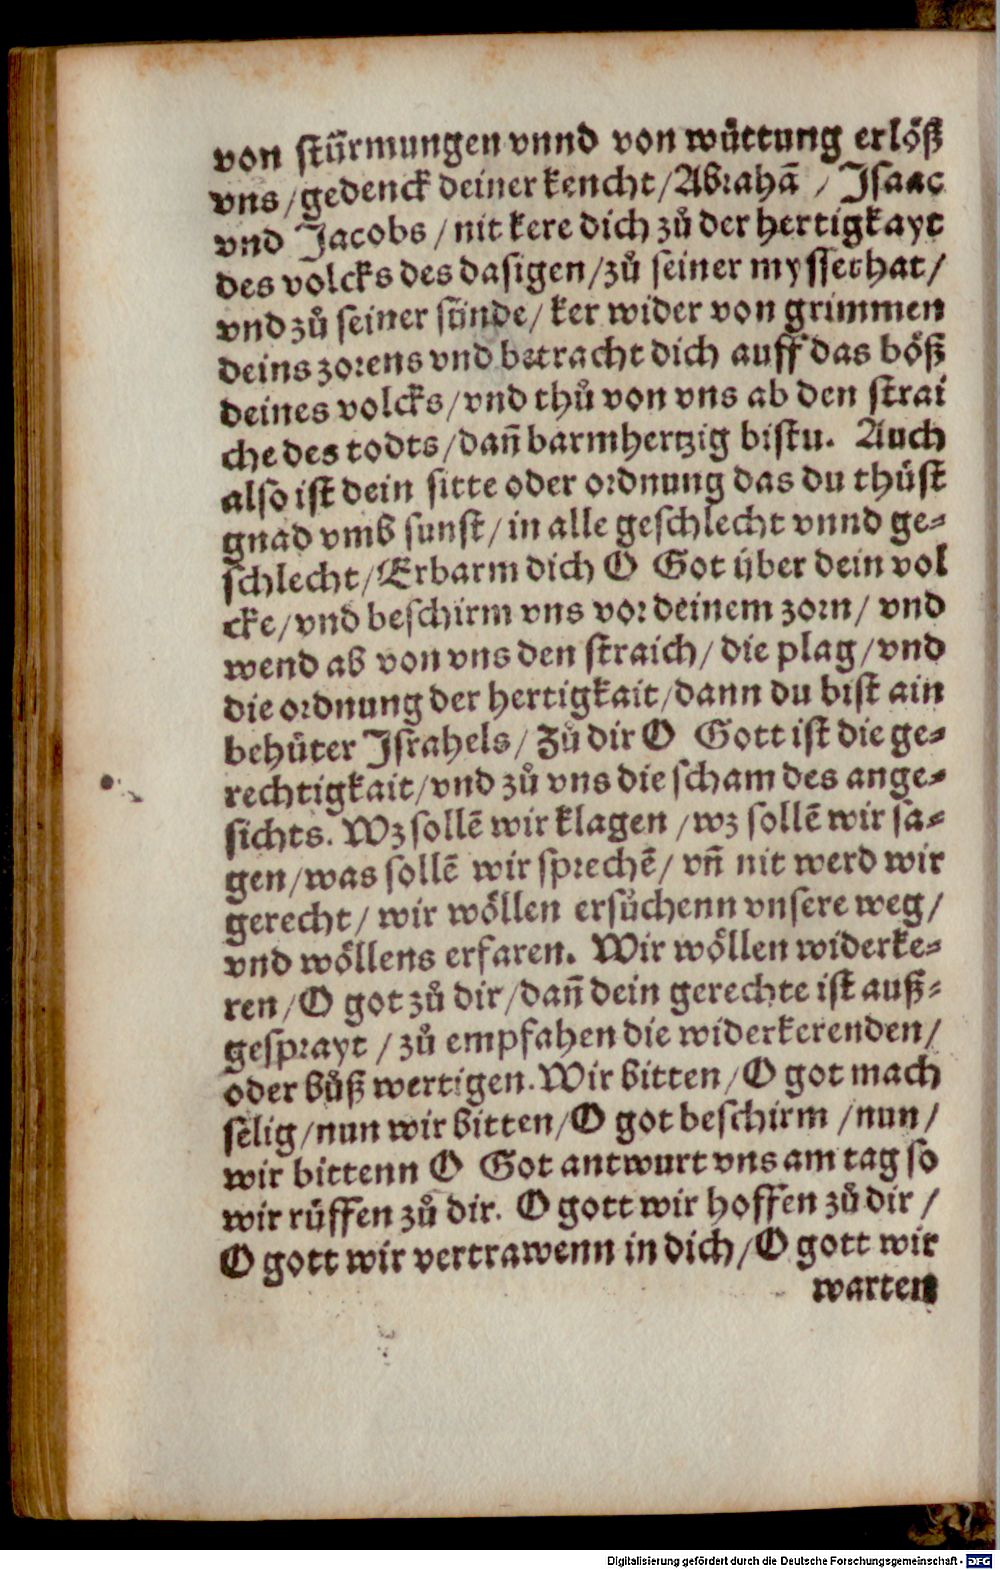 von stürmungen vnnd von wüttung erlöß
vns / gedenck deiner kencht / Abrahā / Isaac
vnd Jacobs / nit kere dich zů der hertigkayt
des volcks des dasigen / zů seiner myssethat /
vnd zů seiner sünde / ker wider von grimmen
deins zorens vnd betracht dich auff das böß
deines volcks / vnd thů von vns ab den strai
che des todts / dañ barmhertzig bistu. Auch
also ist dein sitte oder ordnung das du thüst
gnad vmb sunst / in alle geschlecht vnnd ge-
schlecht / Erbarm dich O Got über dein vol
cke / vnd beschirm vns vor deinem zorn / vnd
wend ab von vns den straich / die plag / vnd
die ordnung der hertigkait / dann du bist ain
behüter Israhels / Zů dir O Gott ist die ge-
rechtigkait / vnd zů vns die scham des ange-
sichts. Wz sollē wir klagen / wz sollē wir sa-
gen / was sollē wir sprechē / vñ nit werd wir
gerecht / wir wöllen ersůchenn vnsere weg /
vnd wöllens erfaren. Wir wöllen widerke-
ren / O got zů dir / dañ dein gerechte ist auß-
gesprayt / zů empfahen die widerkerenden /
oder bůß wertigen. Wir bitten / O got mach
selig / nun wir bitten / O got beschirm / nun /
wir bittenn O Got antwurt vns am tag so
wir rüffen zů dir. O gott wir hoffen zů dir /
O gott wir vertrawenn in dich / O gott wir
warten
Digitalisierung gefördert durch die Deutsche Forschungsgemeinschaft - DFG